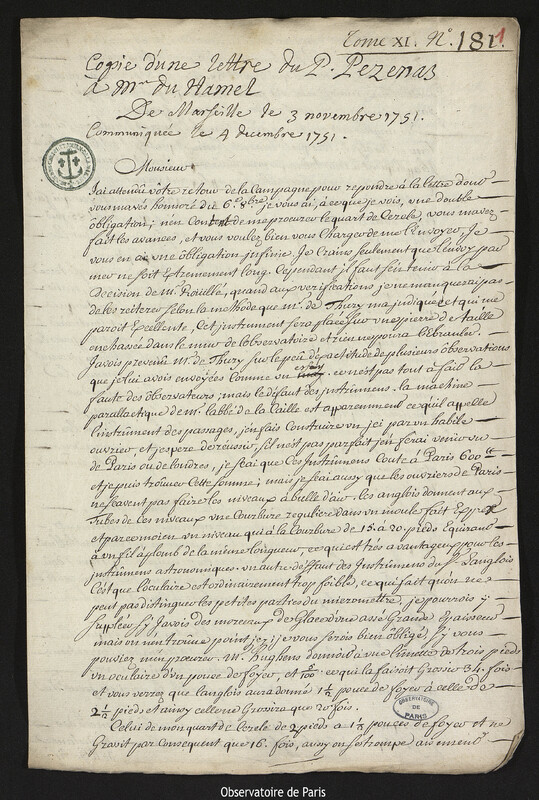 Tome XI. N.° 181 1
Copie d'une lettre du P. Pezenas
à Mr. du Hamel
De Marseille le 3 novembre 1751.
Communiquée le 4 decembre 1751.
Monsieur
J'ai attendu vôtre retour de la Campagne pour repondre à la lettre dont
vous m'avés honoré du 6.e 8bre je vous ai, à ce que je vois, une double
obligation; non de me procurer le quart de Cercle, vous m'avez
fait les avances, et vous voulez bien vous Charger de me l'envoyer, Je
vous en ai une obligation infinie. Je Crains seulement que l'envoy par
mer ne soit Extremement long. Cependant il faut s'en tenir à la
decision de M. Rouillé, quand aux verifications je ne manquerai pas
de les reiterer selon la methode que Mr. de Thury m'a judiqué et qui me
paroit Excellente, Cet instrument sera placé sur une pierre de taille
enchassée dans le mur de l'observatoire et rien ne pourra l'Ebranler.
J'avois prevenu Mr. de Thury sur le peu d'exactitude de plusieurs observations
que je lui avois envoyées Comme un essay. ce n'est pas tout à fait la
faute des observateurs; mais le défaut des instrumens. la machine
parallactique de Mr. l'abbé de la Caille est apparemment ce qu'il appelle
l'instrument des passages, j'en fais Construire un ici par un habile
ouvrier, et j'espere de réussir, s'il n'est pas parfait j'en ferai venir un
de Paris ou de londres, je sçai que Ces Instrumens Coute à Paris 600 tt
et je puis trouver Cette somme; mais je sçai aussy que les ouvriers de Paris
ne scavent pas faire les niveaux à bulle d'air. les anglois donnent aux
Tubes de Ces niveaux une Courbure reguliere dans un moule fait Exprez
et par ce moien un niveau qui à la Courbure de 15. à 20. pieds Equivaut
à un fil à plomb de la même longueur, ce qui est tres avantageux pour les
instrumens astronomiques. un autre deffaut des Instrumens du Sr. Langlois
C'est que l'oculaire est ordinairement trop foible, ce qui fait qu'on ne
peut pas distinguer les petites parties du micromettre, je pourrois y
suppleer si j'avois des morceaux de Glace d'une assez Grande Epaisseur
mais on n'en trouve point icy je vous serois bien obligé, si vous
pouviez m'en procurer. M. Hughens donnoit à une lunette de trois pieds
un oculaire d'un pouce de foyer et 5/100 ce qui la faisoit Grossir 34. fois
et vous verrez que Langlois aura donné 1 1/2 pouce de foyer à celle de
2 1/2 pieds et ainsy celle ne Grossira que 20 fois.
Celui de mon quart de Cercle de 2 pieds a 1 1/2 pouces de foyer et ne
Grossit par Consequent que 16. fois, aussy on se trompe aisement
OBSERVATOIRE DE PARIS
Observatoire de Paris